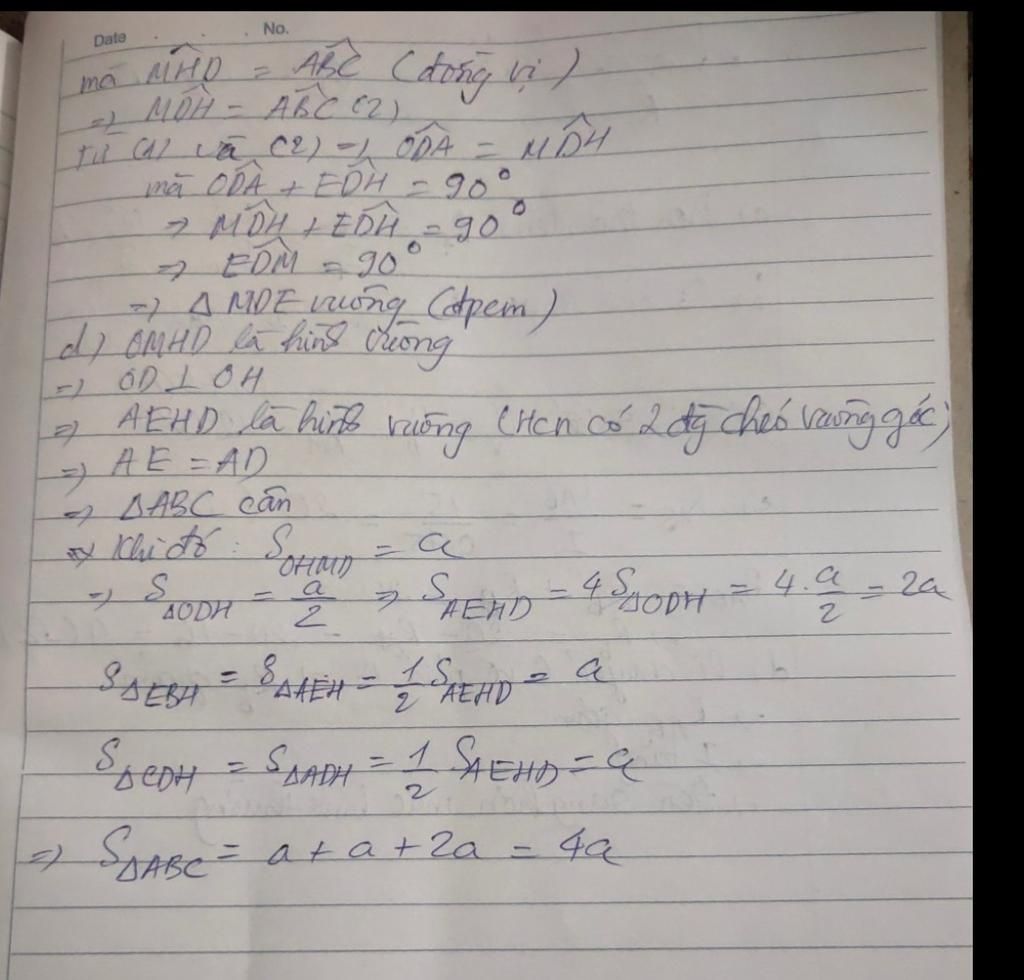 Date . . . No.
mà M̂HD = ÂBC (đồng vị)
=> M̂DH = ÂBC (2)
Từ (1) và (2) => ÔDA = M̂DH
mà ÔDA + ÊDH = 90°
=> M̂DH + ÊDH = 90°
=> ÊDM = 90°
=> Δ MDE vuông (đpcm)
d) OMHD là hình vuông
=> OD ⊥ OH
=> AEHD là hình vuông (Hcn có 2 đg chéo vuông góc)
=> AE = AD
=> ΔABC cân
=> Khi đó : S_OHMD = a
=> S_ΔODH = a/2 => S_AEHD = 4S_ΔODH = 4. a/2 = 2a
S_ΔEBH = S_ΔAEH = 1/2 S_AEHD = a
S_ΔCDH = S_ΔADH = 1/2 S_AEHD = a
=> S_ΔABC = a + a + 2a = 4a